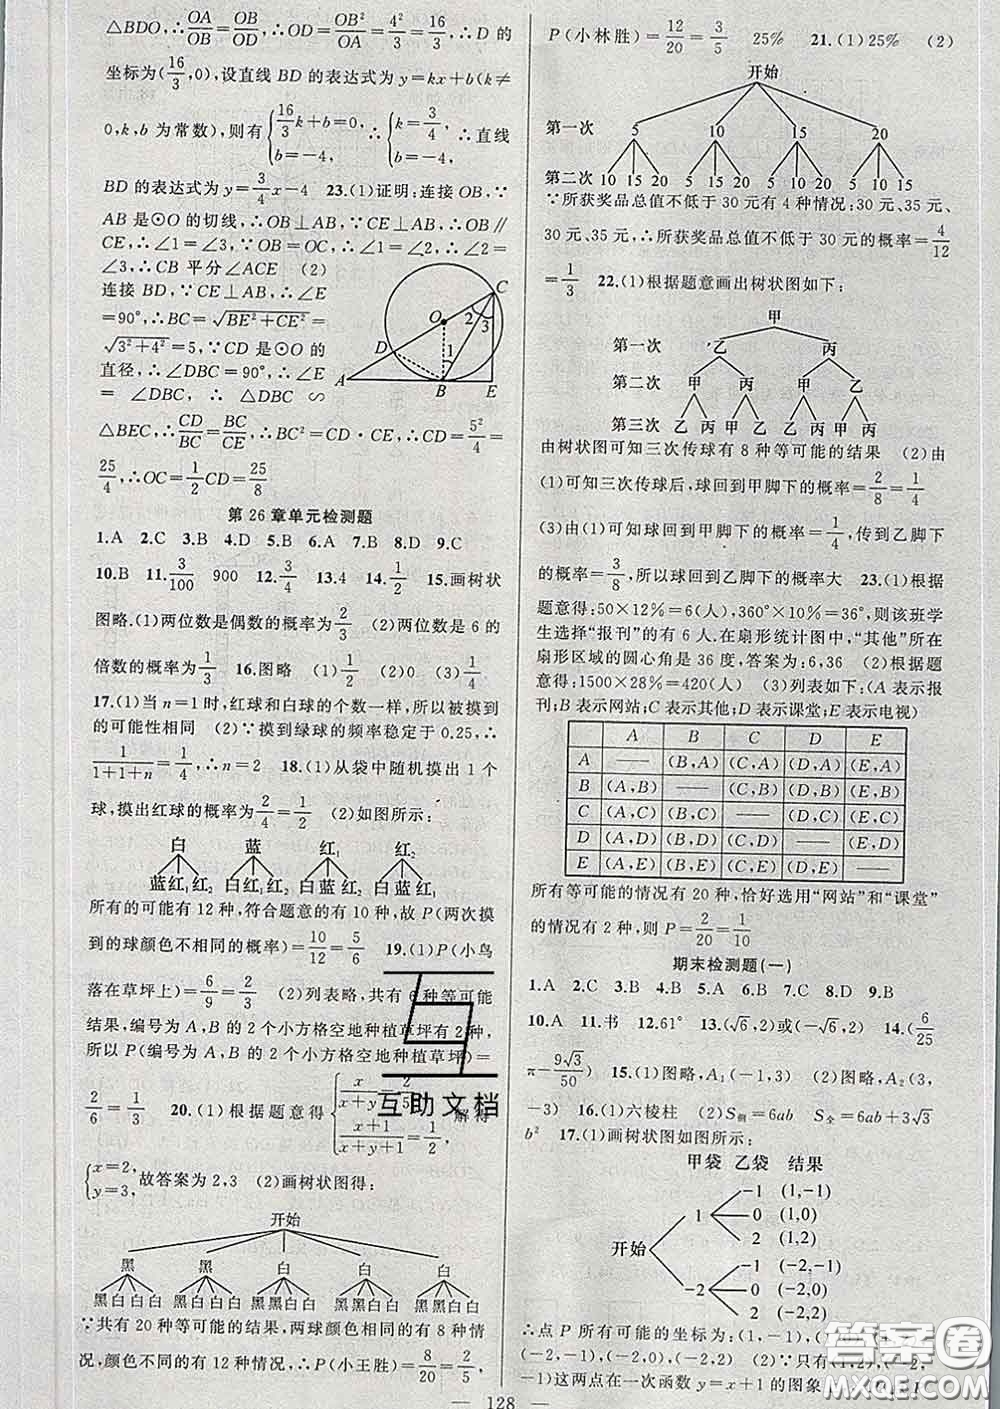 △BDO,∴OA/OB=OB/OD,∴OD=OB²/OA=4²/3=16/3,∴D的
坐标为(16/3,0),设直线BD的表达式为y=kx+b(k≠
0,k,b为常数),则有{16/3k+b=0, b=-4, ∴{k=3/4, b=-4, ∴直线
BD的表达式为y=3/4x-4 23.(1)证明:连接OB,∵
AB是⊙O的切线,∴OB⊥AB,∵CE⊥AB,∴OB∥
CE,∴∠1=∠3,∵OB=OC,∴∠1=∠2,∴∠2=
∠3,∴CB平分∠ACE (2)
连接BD,∵CE⊥AB,∴∠E
=90°,∴BC=√(BE²+CE²)=
√(3²+4²)=5,∵CD是⊙O的
直径,∴∠DBC=90°,∴∠E
=∠DBC,∴△DBC∽
△BEC,∴CD/BC=BC/CE,∴BC²=CD·CE,∴CD=5²/4=
25/4,∴OC=1/2CD=25/8
A B C D E O 1 2 3
第26章单元检测题
1.A 2.C 3.B 4.D 5.B 6.A 7.B 8.D 9.C
10.B 11.3/100 900 12.3/4 13.4 14.1/2 15.画树状
图略.(1)两位数是偶数的概率为2/3 (2)两位数是6的
倍数的概率为1/3 16.图略 (1)1/2 (2)0 (3)1/4
17.(1)当n=1时,红球和白球的个数一样,所以被摸到
的可能性相同 (2)∵摸到绿球的频率稳定于0.25,∴
1/(1+1+n)=1/4,∴n=2 18.(1)从袋中随机摸出1个
球,摸出红球的概率为2/4=1/2 (2)如图所示:
白 蓝 红₁ 红₂
蓝红₁红₂ 白红₁红₂ 白蓝红₂ 白蓝红₁
所有的可能有12种,符合题意的有10种,故P(两次摸
到的球颜色不相同的概率)=10/12=5/6 19.(1)P(小鸟
落在草坪上)=6/9=2/3 (2)列表略,共有6种等可能
结果,编号为A,B的2个小方格空地种植草坪有2种,
所以P(编号为A,B的2个小方格空地种植草坪)=
2/6=1/3 20.(1)根据题意得{x/(x+y)=2/5, (x+1)/(x+y+1)=1/2, 解得
{x=2, y=3, 故答案为2,3 (2)画树状图得:
开始
黑 黑 白 白 白
黑白白白 黑白白白 黑黑白白 黑黑白白 黑黑白白
∵共有20种等可能的结果,两球颜色相同的有8种情
况,颜色不同的有12种情况,∴P(小王胜)=8/20=2/5,
P(小林胜)=12/20=3/5 25% 21.(1)25% (2)
开始
第一次 5 10 15 20
第二次 10 15 20 5 15 20 5 10 20 5 10 15
∵所获奖品总值不低于30元有4种情况:30元、35元、
30元、35元,∴所获奖品总值不低于30元的概率=4/12
=1/3 22.(1)根据题意画出树状图如下:
甲
第一次 乙 丙
第二次 甲 丙 甲 乙
第三次 乙 丙 甲 乙 乙 丙 甲 丙
由树状图可知三次传球有8种等可能的结果 (2)由
(1)可知三次传球后,球回到甲脚下的概率=2/8=1/4
(3)由(1)可知球回到甲脚下的概率=1/4,传到乙脚下的
概率=3/8,所以球回到乙脚下的概率大 23.(1)根据
题意得:50×12%=6(人),360°×10%=36°,则该班学
生选择“报刊”的有6人.在扇形统计图中,“其他”所在
扇形区域的圆心角是36度,答案为:6,36 (2)根据题
意得:1500×28%=420(人) (3)列表如下:(A表示报
刊;B表示网站;C表示其他;D表示课堂;E表示电视)
A B C D E
A —— (B,A) (C,A) (D,A) (E,A)
B (A,B) —— (C,B) (D,B) (E,B)
C (A,C) (B,C) —— (D,C) (E,C)
D (A,D) (B,D) (C,D) —— (E,D)
E (A,E) (B,E) (C,E) (D,E) ——
所有等可能的情况有20种,恰好选用“网站”和“课堂”
的情况有2种,则P=2/20=1/10
期末检测题(一)
1.A 2.C 3.B 4.A 5.B 6.B 7.C 8.D 9.B
10.A 11.书 12.61° 13.(√6,2)或(-√6,2) 14.(6/25
π-9√3/50) 15.(1)图略,A₁(-1,3) (2)图略,A₂(3,
-3) 16.(1)六棱柱 (2)S侧=6ab S全=6ab+3√3
b² 17.(1)画树状图如图所示:
甲袋 乙袋 结果
开始
1 -1 (1,-1)
0 (1,0)
2 (1,2)
-2 -1 (-2,-1)
0 (-2,0)
2 (-2,2)
∴点P所有可能的坐标为:(1,-1),(1,0),(1,2),
(-2,-1),(-2,0),(-2,2) (2)∵只有(1,2),(-2,
-1)这两点在一次函数y=x+1的图象上
128
互助文档
答案圈
MXQE.COM